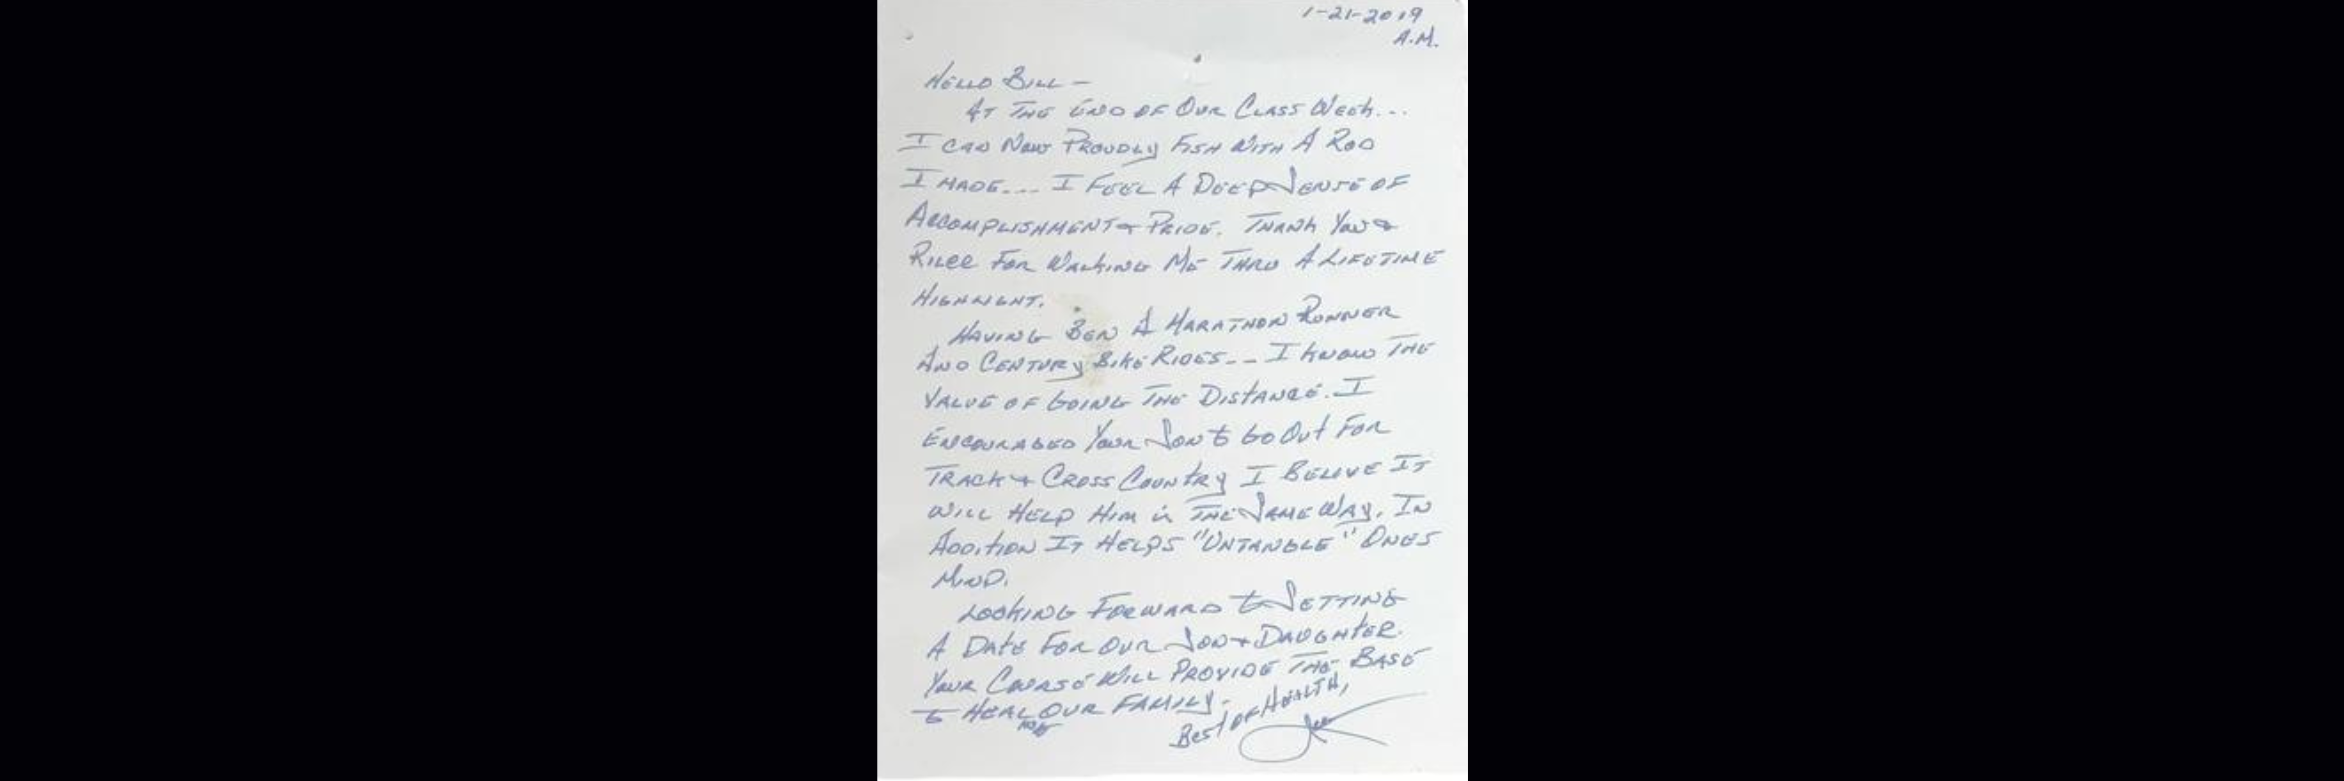 1-21-2019
A.M.
HELLO BILL -
AT THE END OF OUR CLASS WEEK...
I CAN NOW PROUDLY FISH WITH A ROD
I MADE... I FEEL A DEEP SENSE OF
ACCOMPLISHMENT & PRIDE. THANK YOU &
RILEE FOR WALKING ME THRU A LIFETIME
HIGHLIGHT.
HAVING BEN A MARATHON RUNNER
AND CENTURY BIKE RIDES.. I KNOW THE
VALUE OF GOING THE DISTANCE. I
ENCOURAGED YOUR SON to GO OUT FOR
TRACK & CROSS COUNTRY I BELIVE IT
WILL HELP HIM in THE SAME WAY. IN
ADDITION IT HELPS "UNTANGLE" ONES
MIND.
LOOKING FORWARD to SETTING
A DATE FOR OUR SON & DAUGHTER.
YOUR COURSE WILL PROVIDE THE BASE
to HEAL OUR FAMILY.
BEST OF HEALTH,